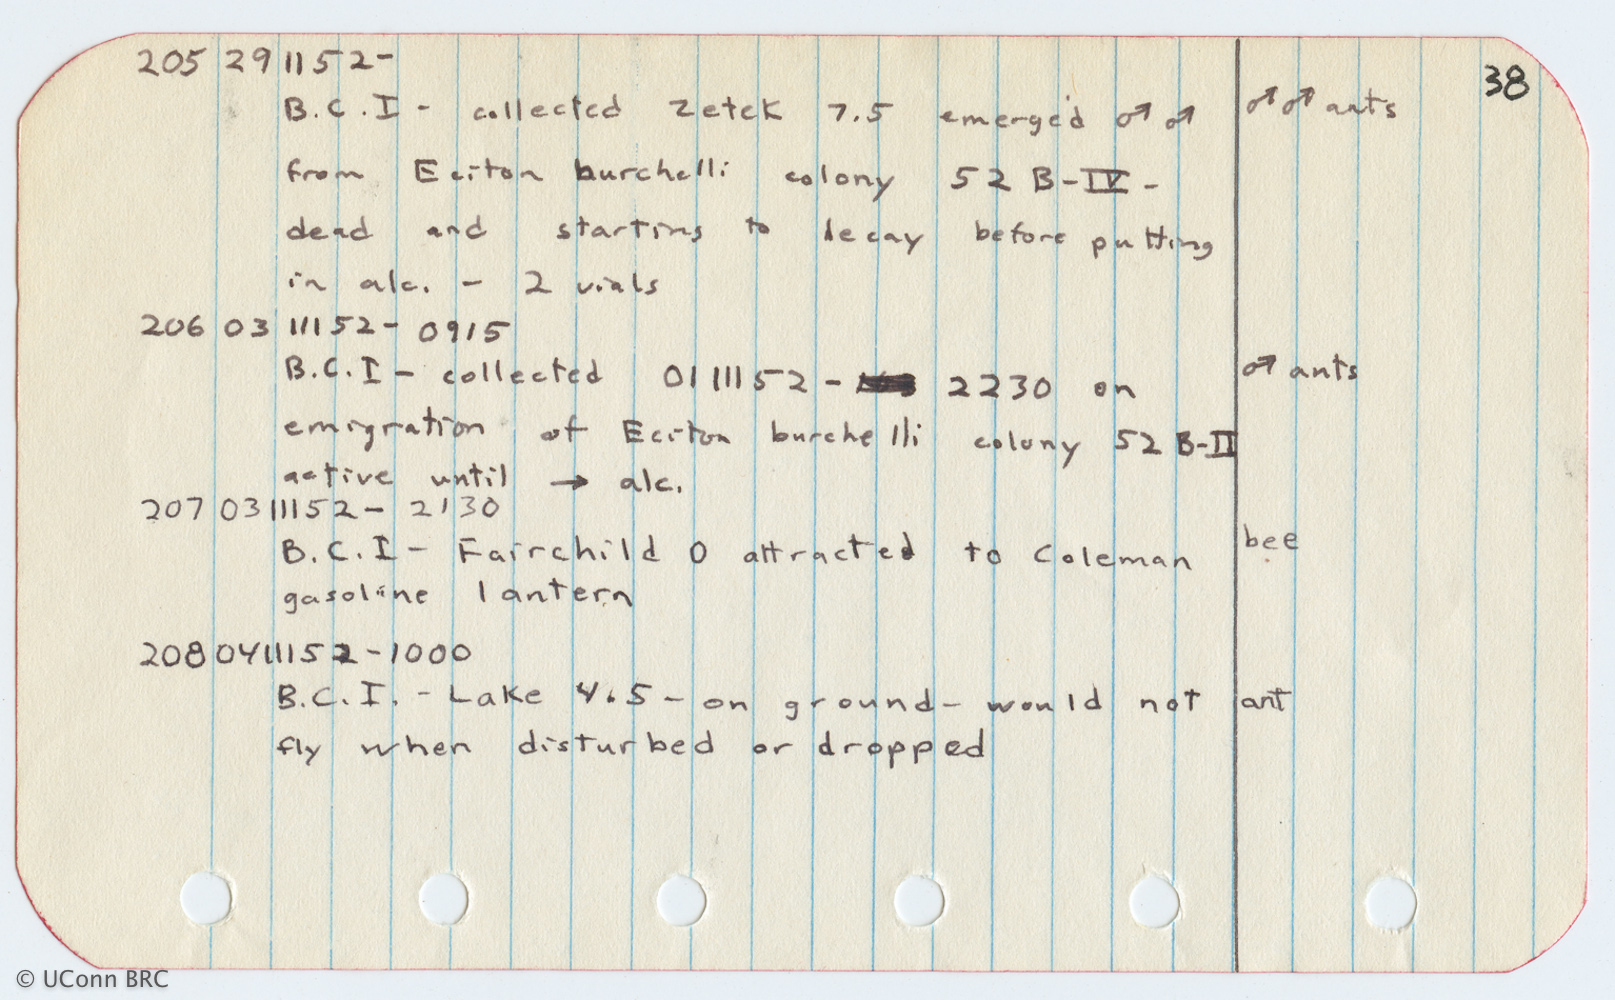 38
205 29 11 52-
B.C.I - collected Zetek 7.5 emerged ♂♂ ♂♂ ants
from Eciton burchelli colony 52 B-IV -
dead and starting to decay before putting
in alc. - 2 vials
206 03 111 52- 0915
B.C.I - collected 01 111 52 - 2230 on ♂ ants
emigration of Eciton burchelli colony 52 B-II
active until → alc.
207 03 111 52- 2130
B.C.I - Fairchild 0 attracted to Coleman bee
gasoline lantern
208 04 111 52 -1000
B.C.I. - Lake 4.5 - on ground - would not ant
fly when disturbed or dropped
© UConn BRC